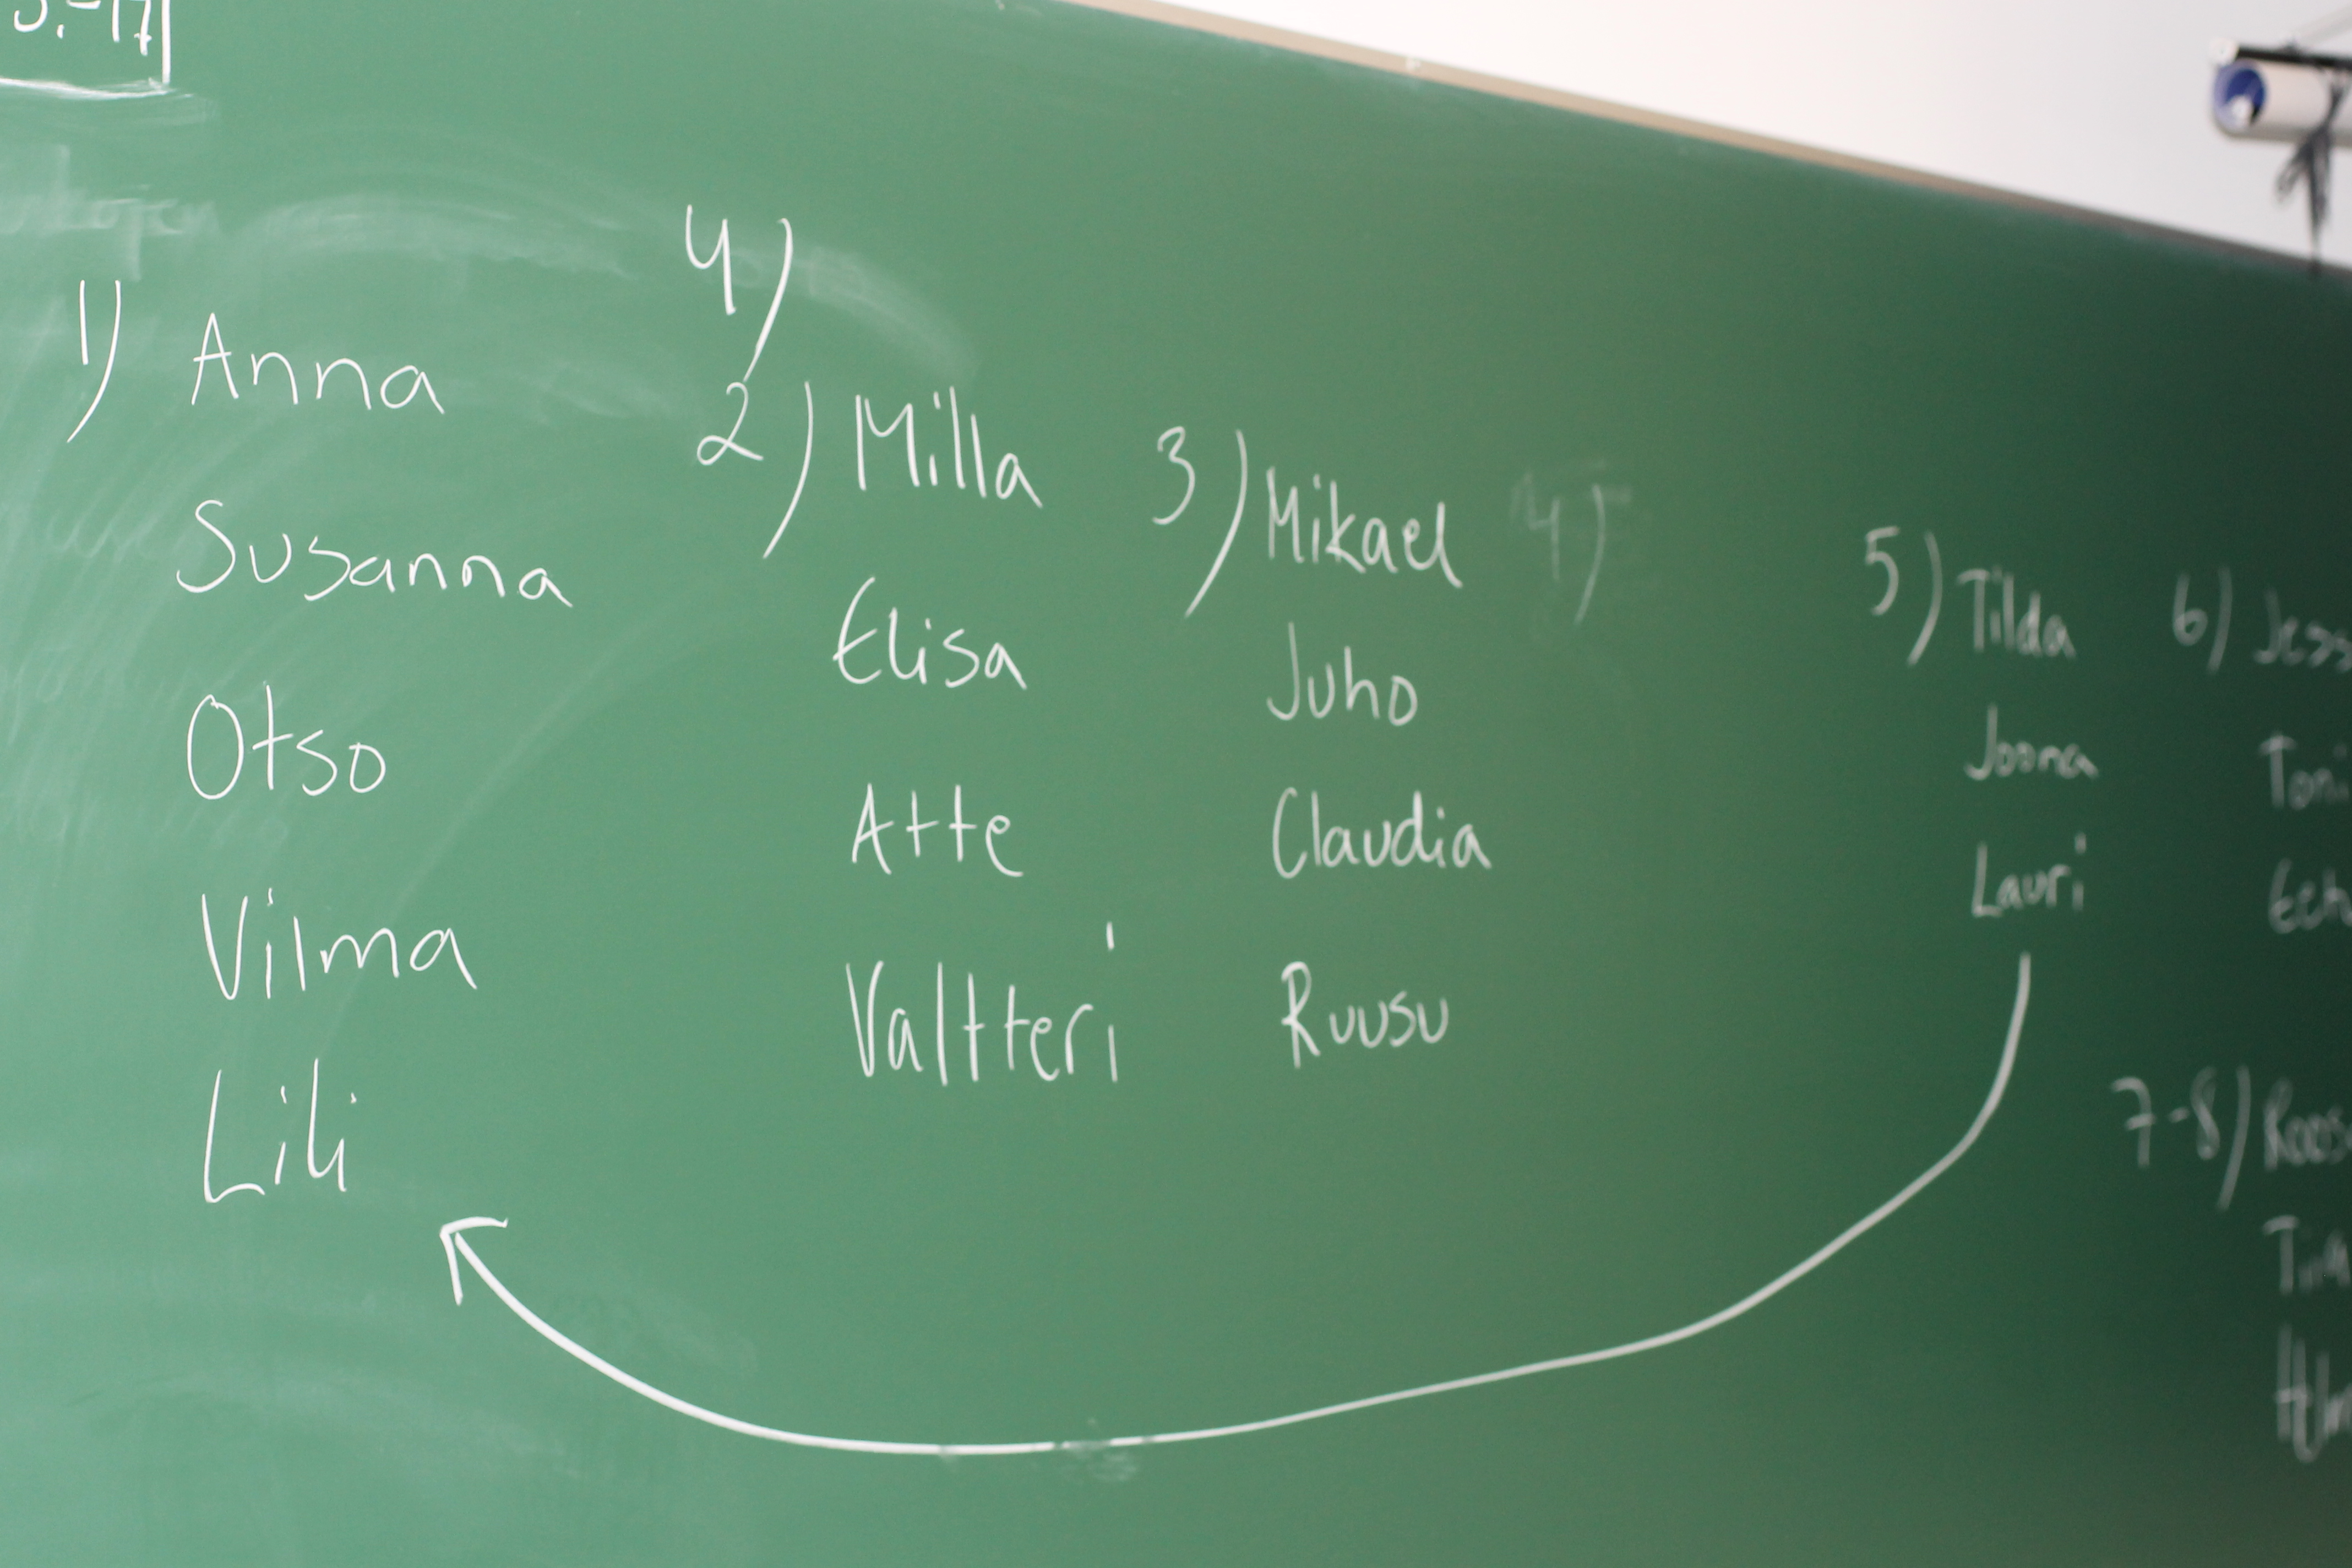 1) Anna
Susanna
Otso
Vilma
Lili
4)
2) Milla
Elisa
Atte
Valtteri
3) Mikael
Juho
Claudia
Ruusu
4)
5) Tilda
Joona
Lauri
6)
Toni
7-8)